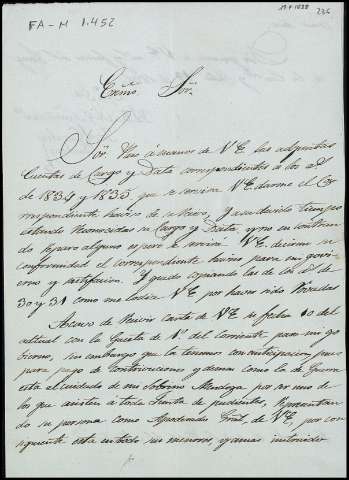 FA-M 1.452
236
Excmo. Sor.
Sor. Paso á manos de V.E. las adjuntas
Cuentas de Cargo y Data correspondientes a los a.s
de 1834 y 1835 que se servira V.E. darme el Cor-
respondiente haviso de su Recivo, y a su devido tiempo
estando Reconocidas su Cargo y Data y no encontran
do Reparo alguno espero se servirá V.E. decirme su
conformidad el correspondiente haviso para mi govi-
erno y satisfacion. Y quedo copiando las de los a.s de
30 y 31 como me hordena V.E. por haver sido
Acavo de Recivir Carta de V.E. su fecha 10 del
actual con la Gaceta de N. del Corriente para mi go
vierno, sin embargo que la tenemos con anticipacion pues
para pago de Contribuciones y demas como la de Guerra
esta el cuidado de mi Sobrino Mendoza por ser uno de
los que asisten á toda Junta de pudientes, Representan
do su persona como Apoderado Gral. de V.E. por con
siguiente esta en todo sus menores, y a mas instruido